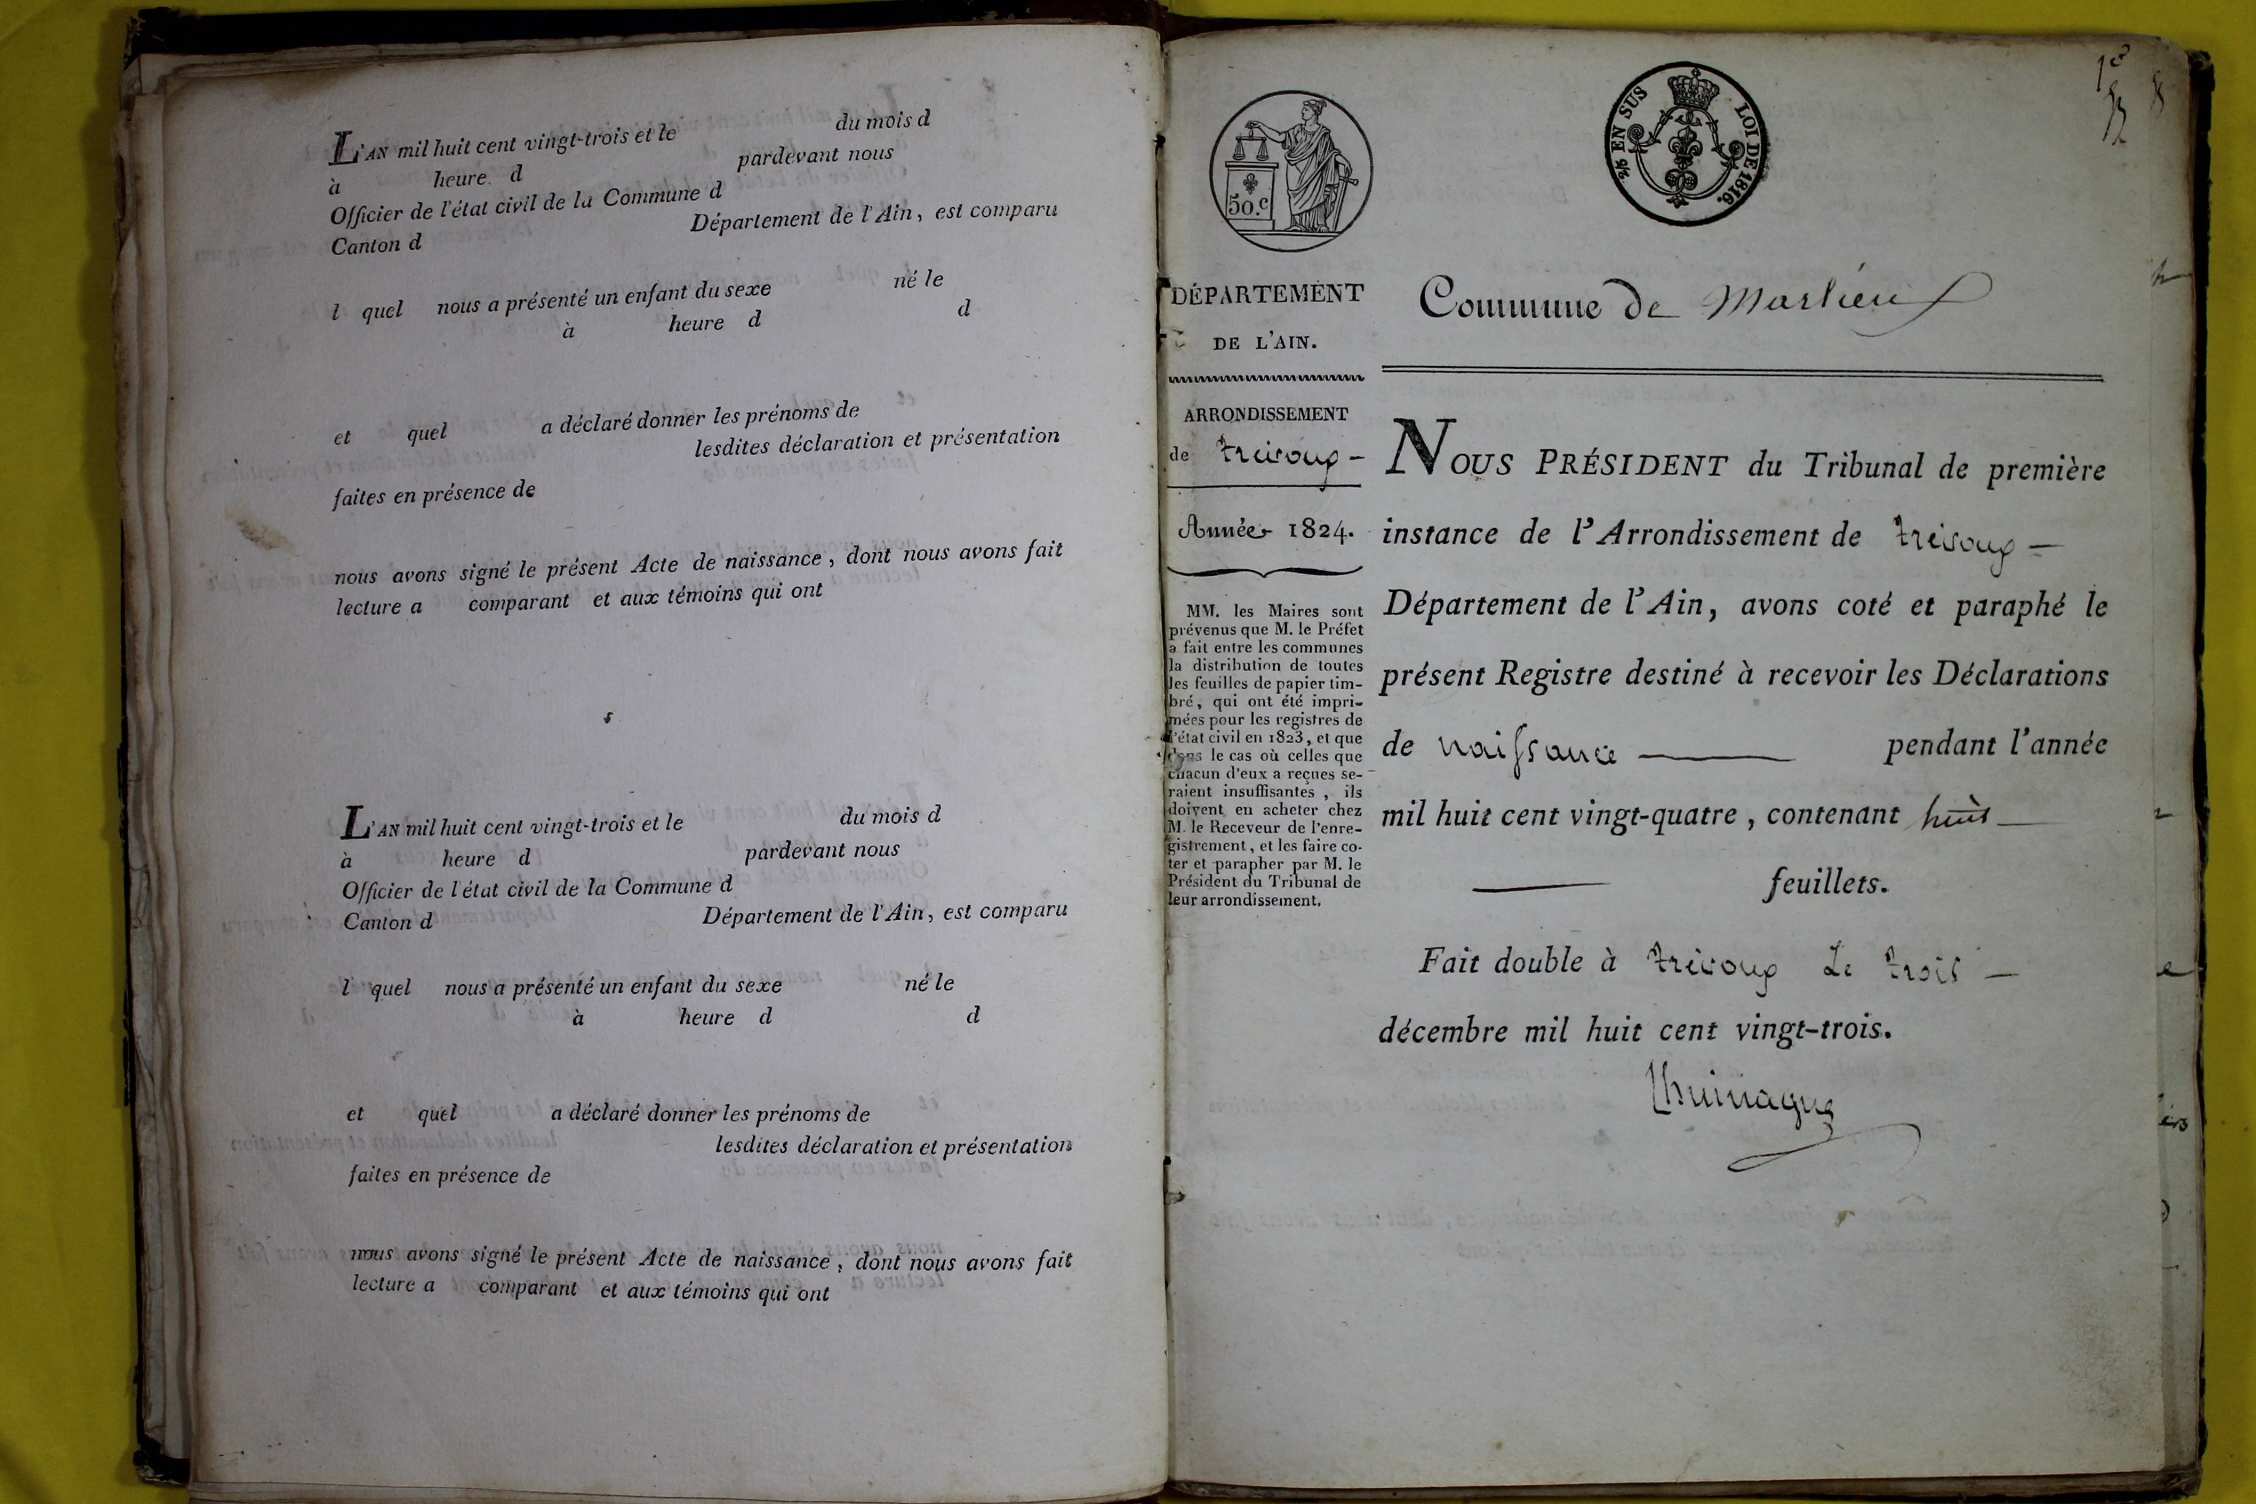 L'AN mil huit cent vingt-trois et le du mois d
à heure d pardevant nous
Officier de l'état civil de la Commune d
Canton d Département de l'Ain, est comparu
l quel nous a présenté un enfant du sexe né le
à heure d d
et quel a déclaré donner les prénoms de
lesdites déclaration et présentation
faites en présence de
nous avons signé le présent Acte de naissance, dont nous avons fait
lecture a comparant et aux témoins qui ont
L'AN mil huit cent vingt-trois et le du mois d
à heure d pardevant nous
Officier de l'état civil de la Commune d
Canton d Département de l'Ain, est comparu
l quel nous a présenté un enfant du sexe né le
à heure d d
et quel a déclaré donner les prénoms de
lesdites déclaration et présentation
faites en présence de
nous avons signé le présent Acte de naissance, dont nous avons fait
lecture a comparant et aux témoins qui ont
50.c
2/5 EN SUS LOI DE 1816.
DÉPARTEMENT
DE L'AIN.
ARRONDISSEMENT
de trévoux –
Année 1824.
MM. les Maires sont
prévenus que M. le Préfet
a fait entre les communes
la distribution de toutes
les feuilles de papier tim-
bré, qui ont été impri-
mées pour les registres de
l'état civil en 1823, et que
dans le cas où celles que
chacun d'eux a reçues se-
raient insuffisantes, ils
doivent en acheter chez
M. le Receveur de l'enre-
gistrement, et les faire co-
ter et parapher par M. le
Président du Tribunal de
leur arrondissement.
Commune de Marlieu
NOUS PRÉSIDENT du Tribunal de première
instance de l'Arrondissement de trévoux –
Département de l'Ain, avons coté et paraphé le
présent Registre destiné à recevoir les Déclarations
de naissance — pendant l'année
mil huit cent vingt-quatre, contenant huit —
— feuillets.
Fait double à trévoux Le trois –
décembre mil huit cent vingt-trois.